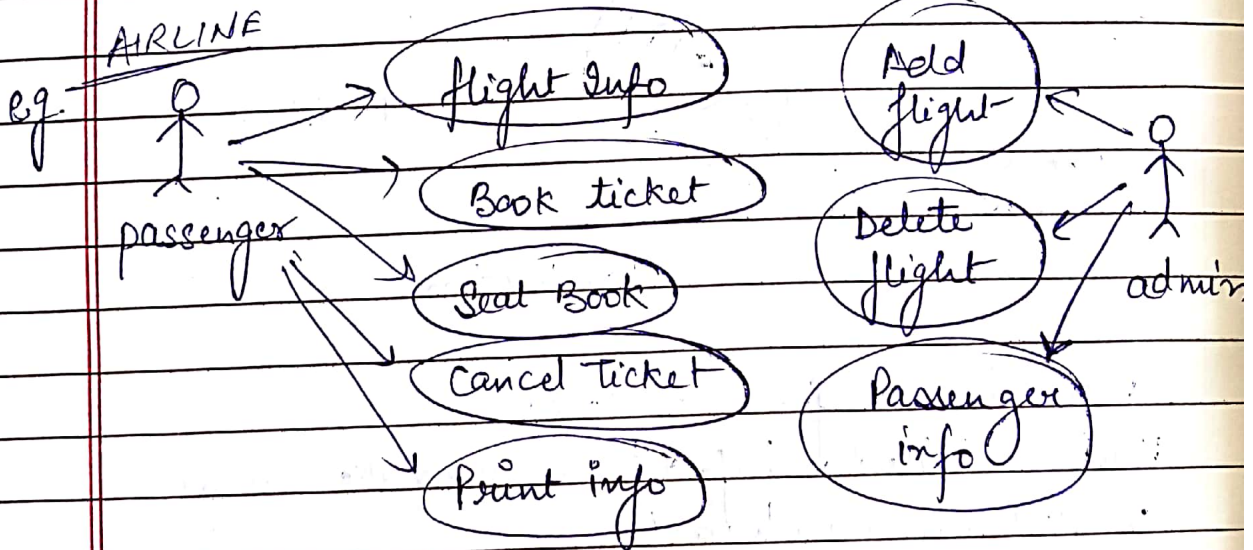 AIRLINE
eg.
passenger
flight Info
Book ticket
Seat Book
Cancel Ticket
Print info
Add
flight
Delete
flight
Passenger
info
admin